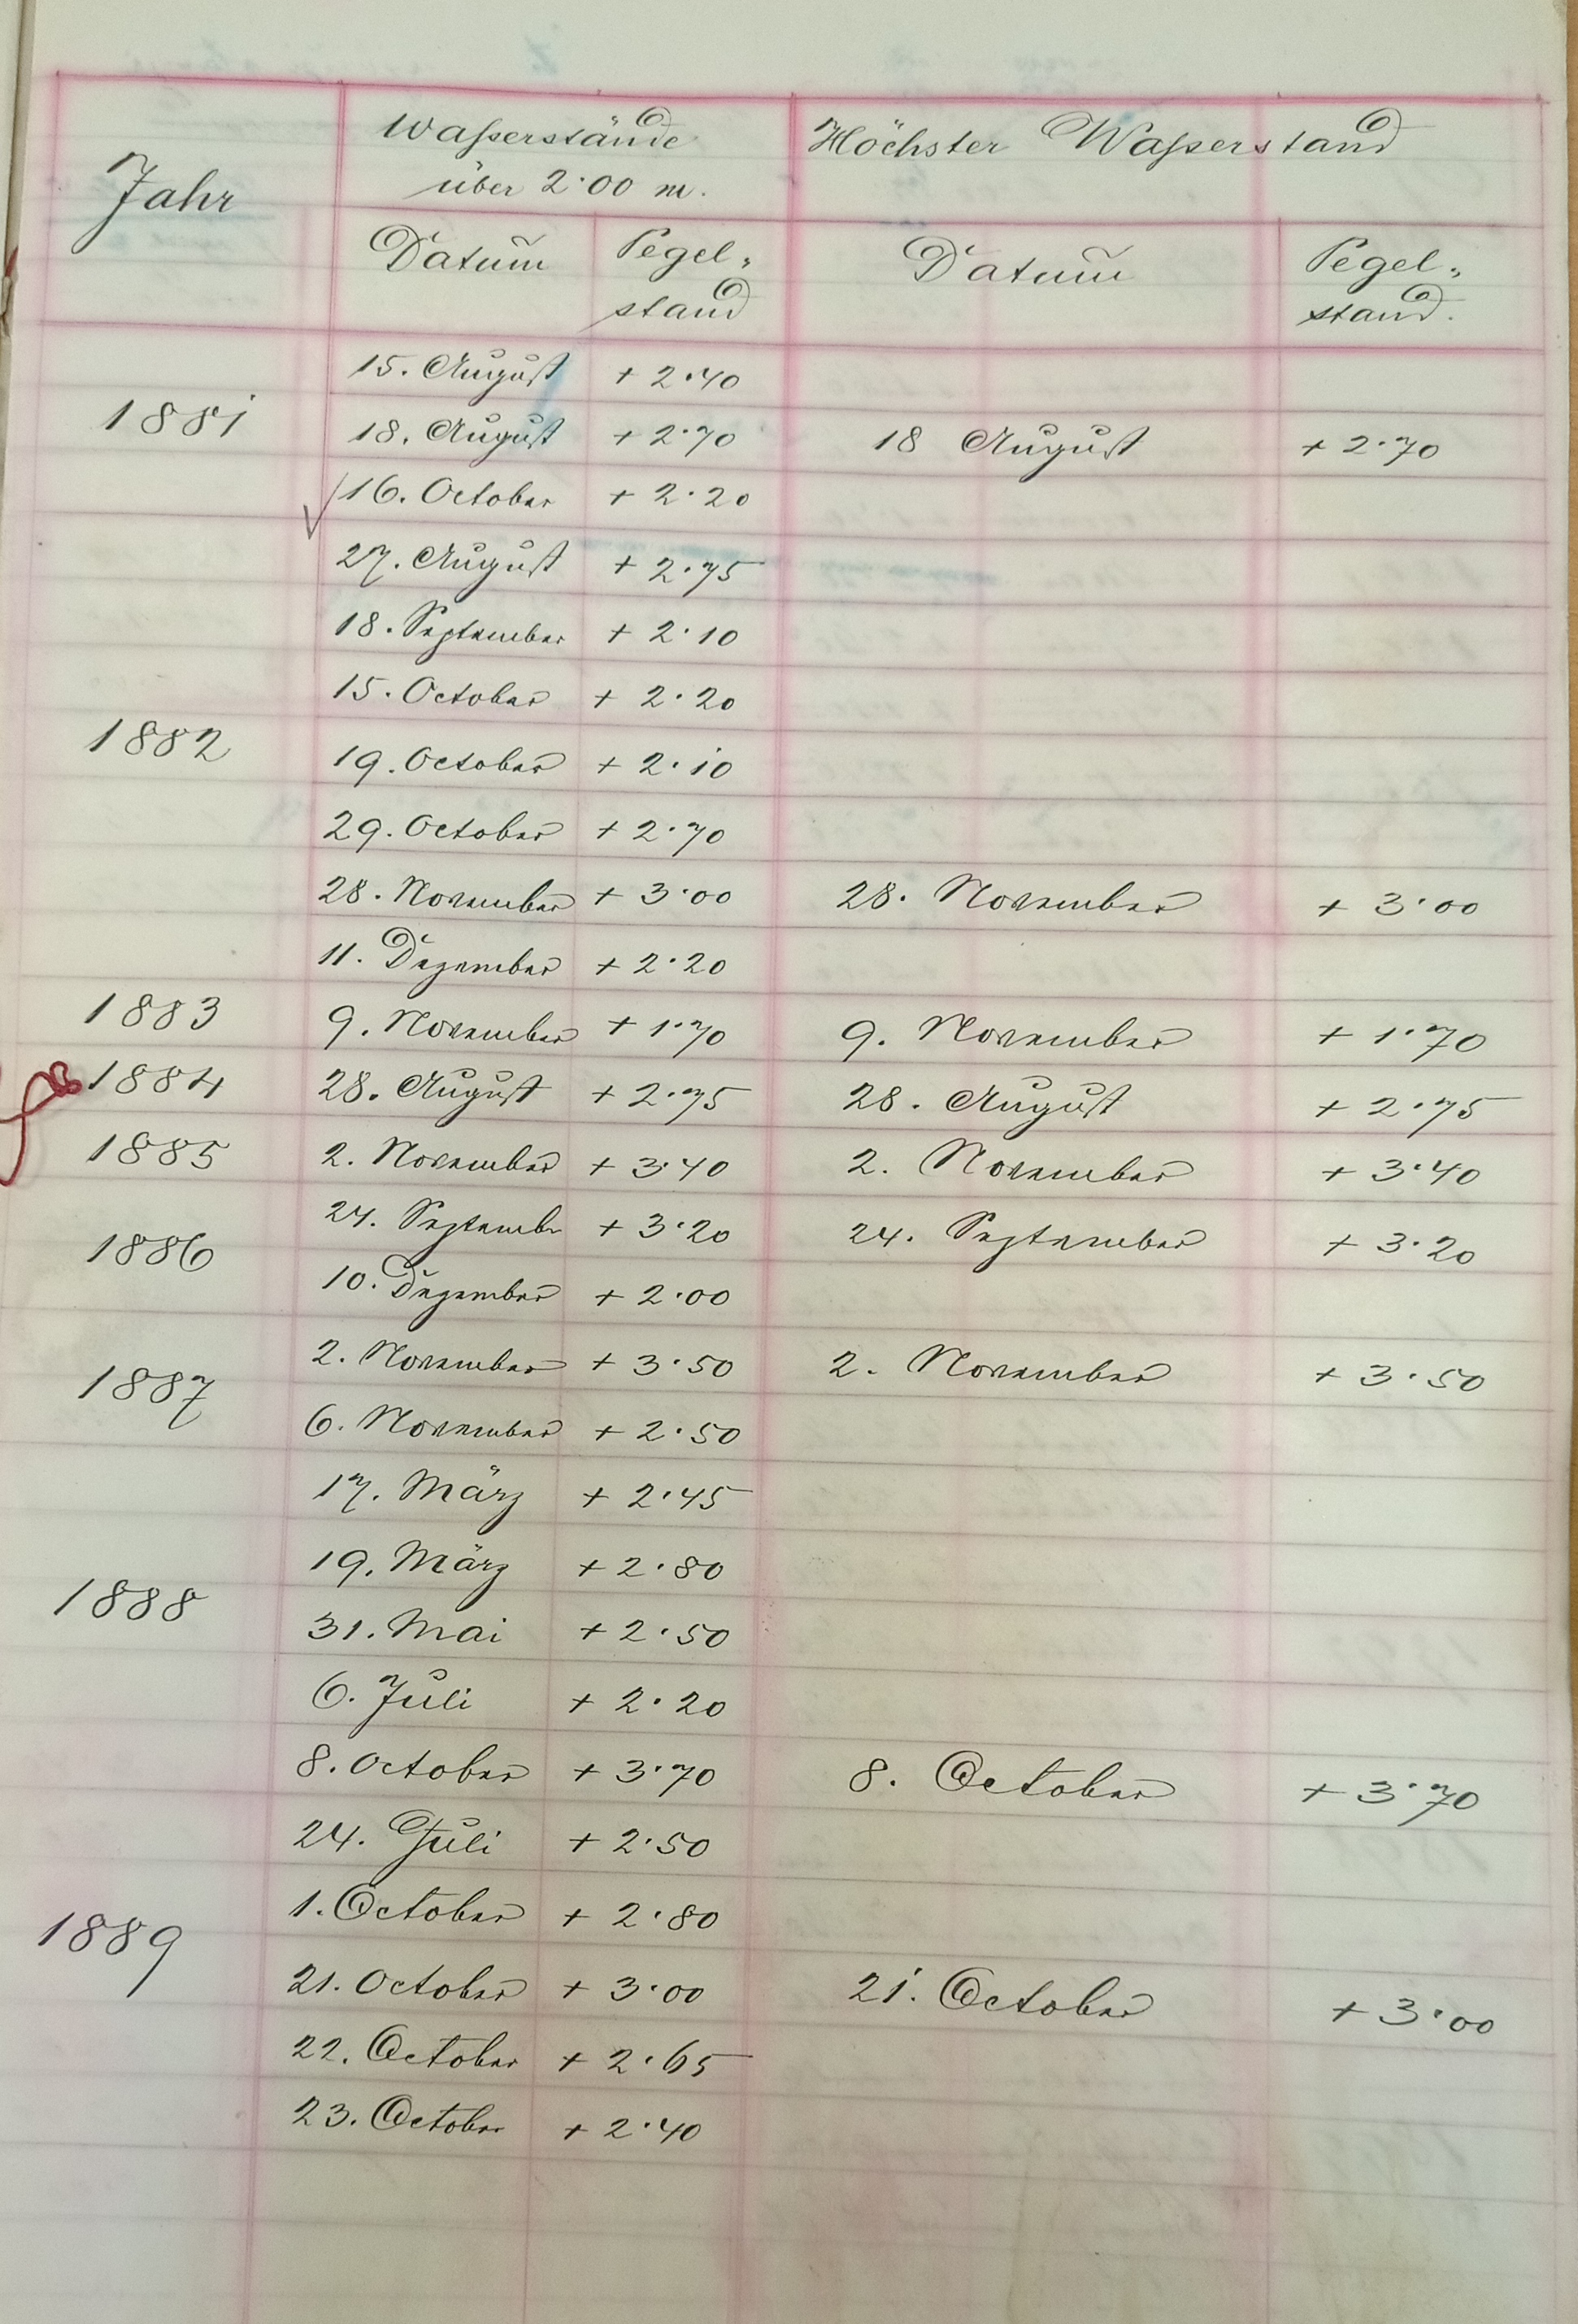 Jahr Wasserstände Höchster Wasserstand
über 2·00 m.
Datum Pegel- Datum Pegel-
stand stand.
15. August + 2·40
1881 18. August + 2·70 18 August + 2·70
16. October + 2·20
27. August + 2·75
18. September + 2·10
15. October + 2·20
1882 19. October + 2·10
29. October + 2·70
28. November + 3·00 28. November + 3·00
11. Dezember + 2·20
1883 9. November + 1·70 9. November + 1·70
1884 28. August + 2·75 28. August + 2·75
1885 2. November + 3·40 2. November + 3·40
24. Septembr + 3·20 24. September + 3·20
1886 10. Dezember + 2·00
2. November + 3·50 2. November + 3·50
1887 6. November + 2·50
17. März + 2·45
19. März + 2·80
1888 31. Mai + 2·50
6. Juli + 2·20
8. October + 3·70 8. October + 3·70
24. Juli + 2·50
1. October + 2·80
1889 21. October + 3·00 21. October + 3·00
22. October + 2·65
23. October + 2·40